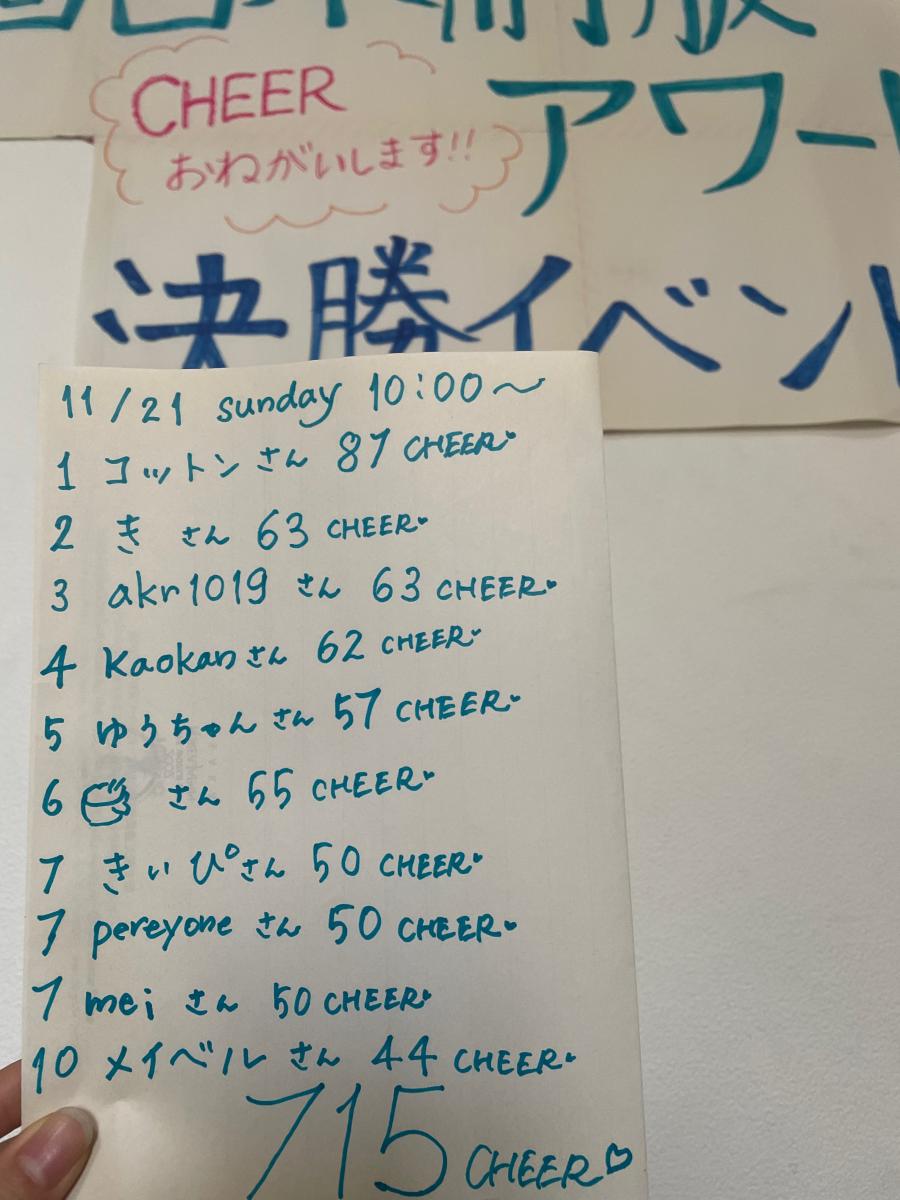 日本制服
CHEER
おねがいします!!
アワー
決勝イベン
11/21 sunday 10:00〜
1 コットンさん 87 CHEER♥
2 き さん 63 CHEER♥
3 akr1019 さん 63 CHEER♥
4 kaokanさん 62 CHEER♥
5 ゆうちゃんさん 57 CHEER♥
6 さん 55 CHEER♥
7 きぃぴさん 50 CHEER♥
7 pereyone さん 50 CHEER♥
7 mei さん 50 CHEER♥
10 メイベル さん 44 CHEER♥
715 CHEER♡